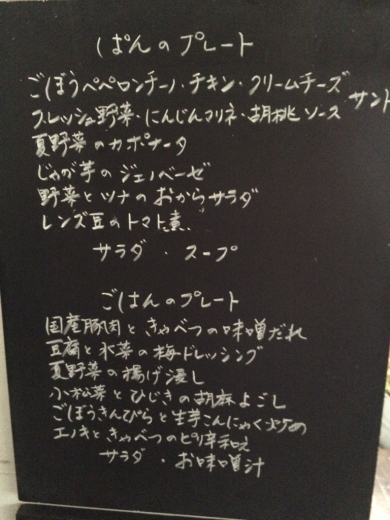 ぱんのプレート
ごぼうペペロンチーノ・チキン・クリームチーズ
フレッシュ野菜・にんじんマリネ・胡桃ソース サント
夏野菜のカポナータ
じゃが芋のジェノベーゼ
野菜とツナのおからサラダ
レンズ豆のトマト煮
サラダ・スープ
ごはんのプレート
国産豚肉ときゃべつの味噌だれ
豆腐と水菜の梅ドレッシング
夏野菜の揚げ浸し
小松菜とひじきの胡麻よごし
ごぼうきんぴらと生芋こんにゃく炒め
エノキときゃべつのピリ辛和え
サラダ・お味噌汁